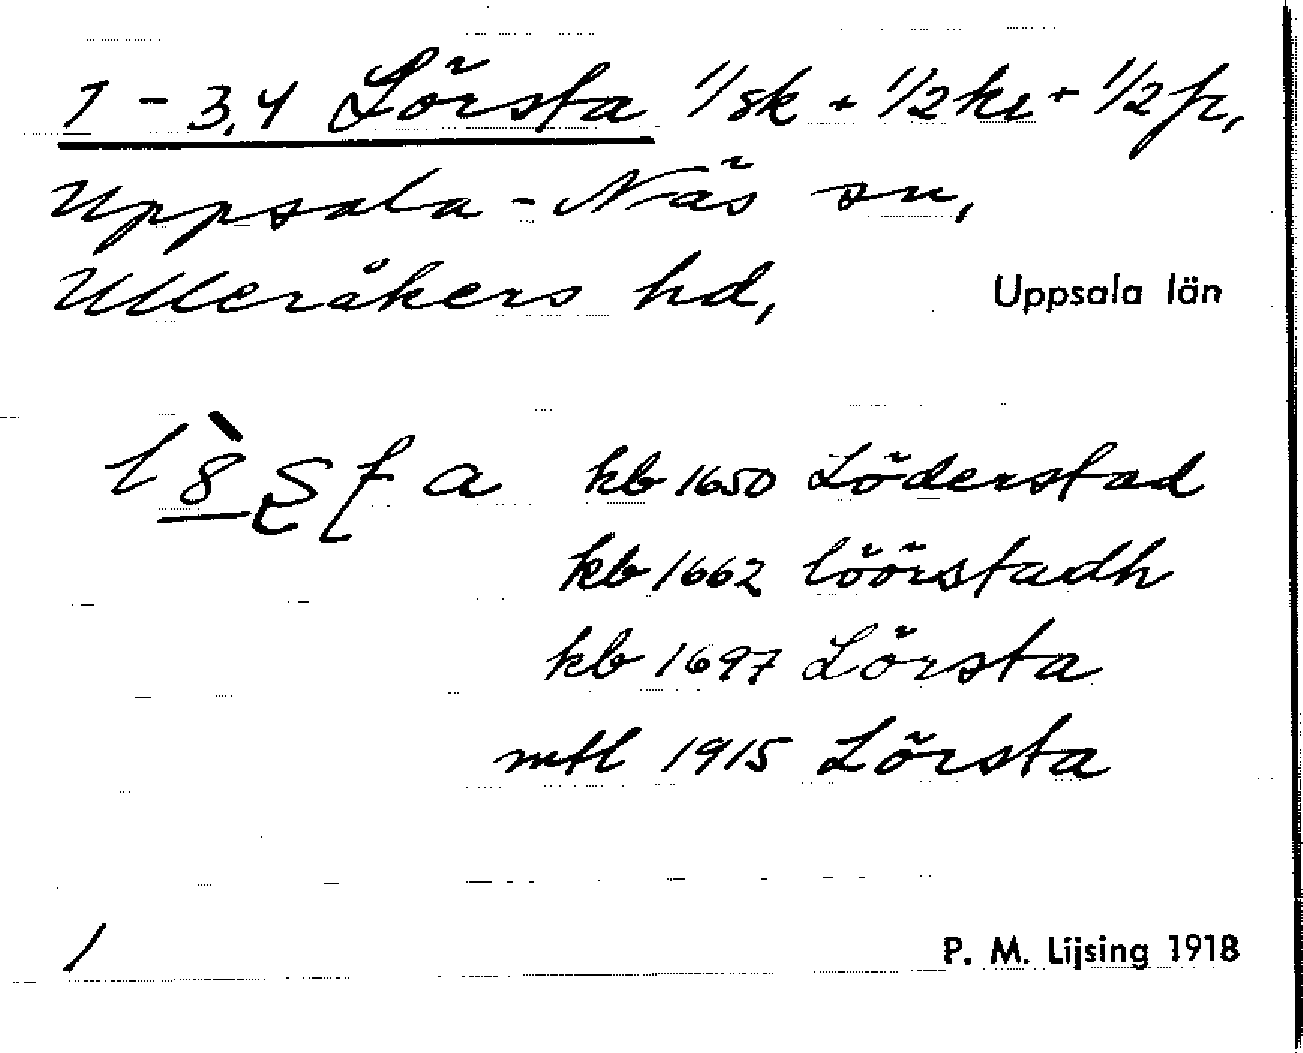 1 - 3,4 Lörsta 1/sk + 1/2 kr + 1/2 fr,
Uppsala-Näs sn,
Ulleråkers hd, Uppsala län
kb 1650 Löderstad
kb 1662 löörstadh
kb 1697 Lörsta
mtl 1915 Lörsta
1 P. M. Lijsing 1918